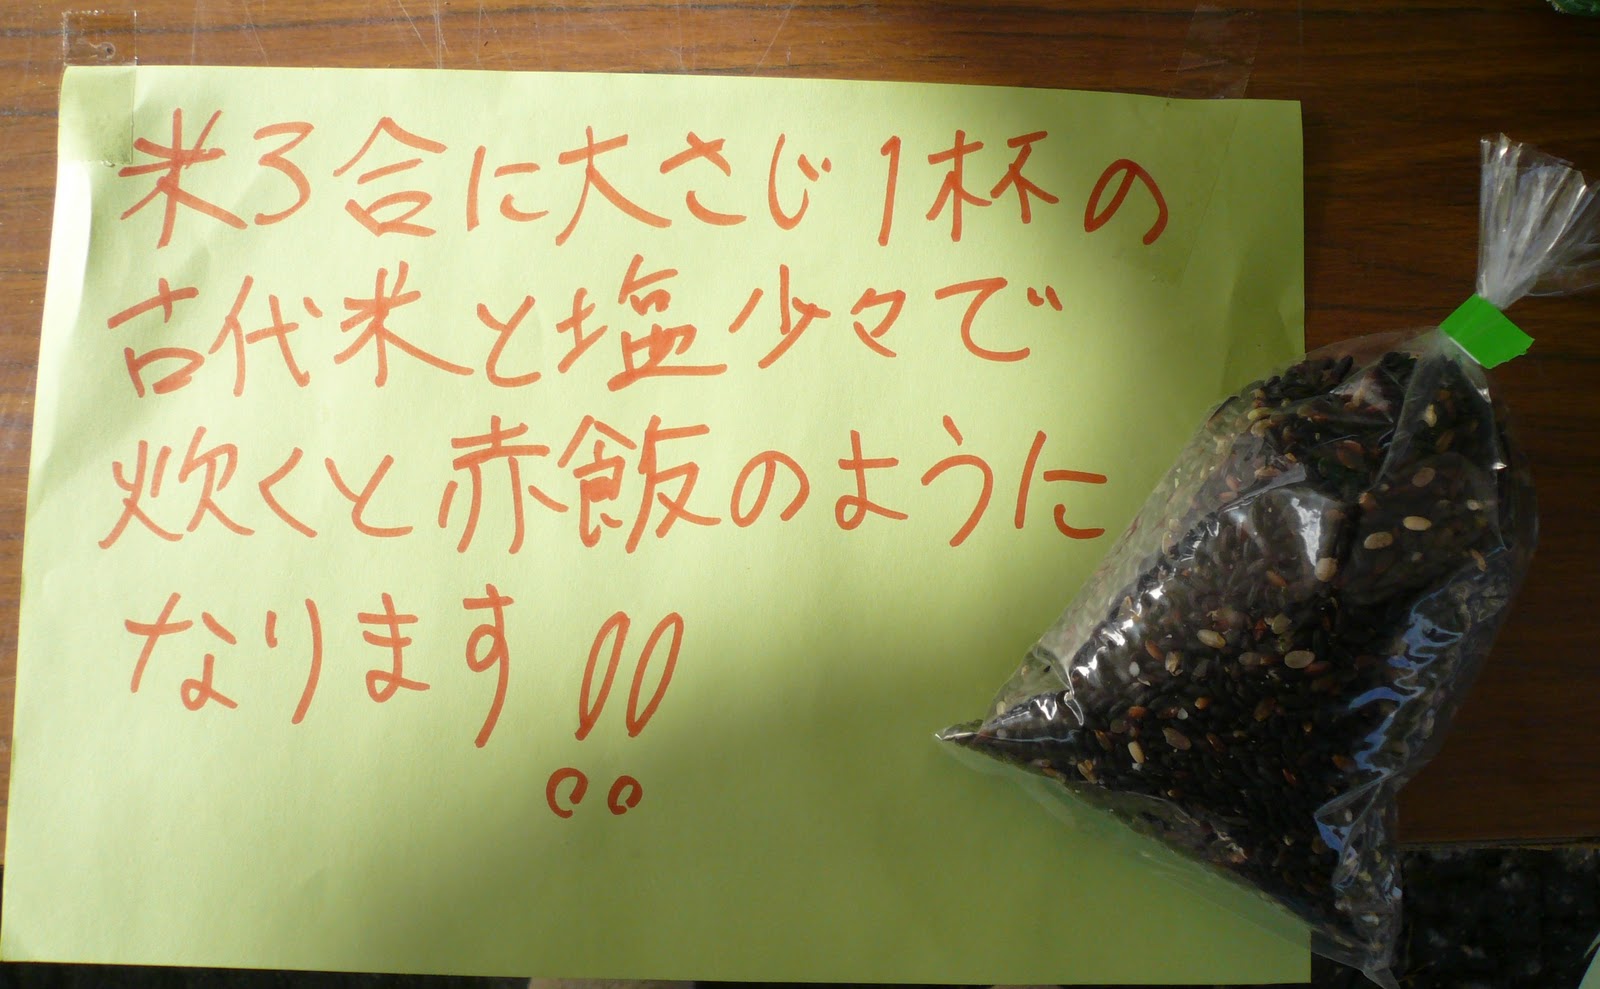 米3合に大さじ1杯の
古代米と塩少々で
炊くと赤飯のように
なります!!